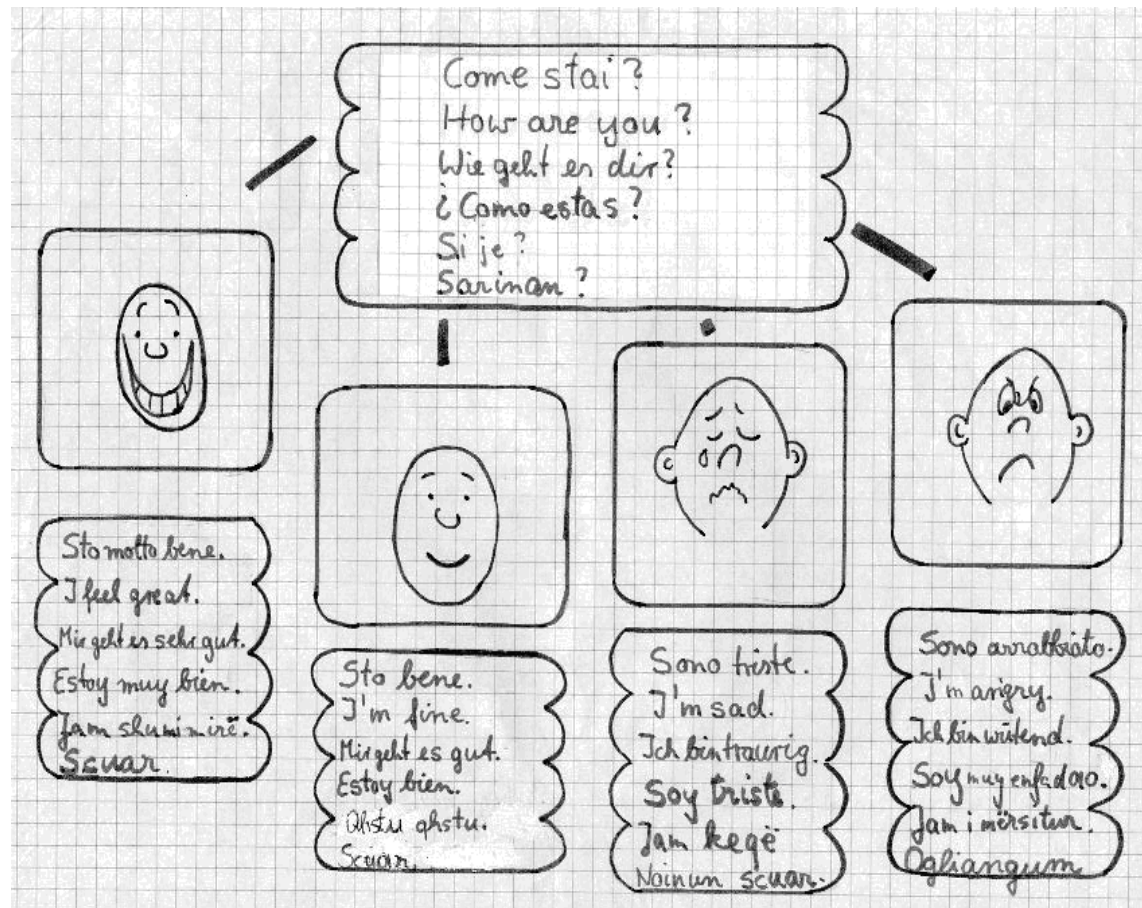 Come stai?
How are you?
Wie geht es dir?
¿Como estas?
Si je?
Sarinan?
Sto molto bene.
I feel great.
Mir geht es sehr gut.
Estoy muy bien.
Jam shumi mirë.
Scuar.
Sto bene.
I'm fine.
Mir geht es gut.
Estoy bien.
Qhstu qhstu.
Scuar.
Sono triste.
I'm sad.
Ich bin traurig.
Soy triste.
Jam keqë
Noinun scuar.
Sono arrabbiato.
I'm angry.
Ich bin wütend.
Soy muy enfadao.
Jam i mërsitur.
Ogliangum